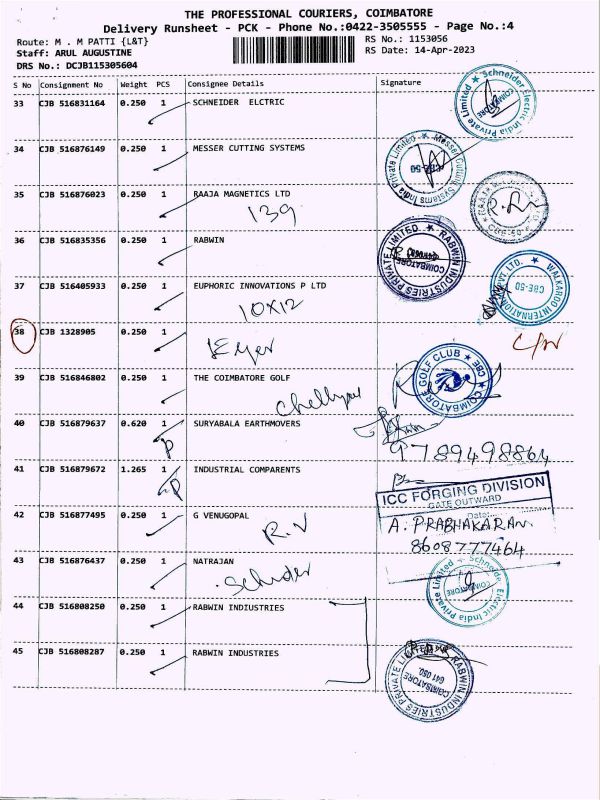 THE PROFESSIONAL COURIERS, COIMBATORE
Delivery Runsheet - PCK - Phone No.:0422-3505555 - Page No.:4
Route: M . M PATTI {L&T}
RS No.: 1153056
Staff: ARUL AUGUSTINE
RS Date: 14-Apr-2023
DRS No.: DCJB115305604
S No Consignment No Weight PCS Consignee Details Signature
33 CJB 516831164 0.250 1 SCHNEIDER ELCTRIC
Schneider Electric India Private Limited
COIMBATORE
34 CJB 516876149 0.250 1 MESSER CUTTING SYSTEMS
Messer Cutting Systems India Private Limited
CBE-50
35 CJB 516876023 0.250 1 RAAJA MAGNETICS LTD
139
36 CJB 516835356 0.250 1 RABWIN
RABWIN INDUSTRIES PRIVATE LIMITED
COIMBATORE
37 CJB 516405933 0.250 1 EUPHORIC INNOVATIONS P LTD
10X12
CBE-50
38 CJB 1328905 0.250 1
39 CJB 516846802 0.250 1 THE COIMBATORE GOLF
COIMBATORE GOLF CLUB CBE
40 CJB 516879637 0.620 1 SURYABALA EARTHMOVERS
P
9789498864
41 CJB 516879672 1.265 1 INDUSTRIAL COMPARENTS
P
ICC FORGING DIVISION
GATE OUTWARD
Date:
A. PRABHAKARAN
8608777464
42 CJB 516877495 0.250 1 G VENUGOPAL
R.V
43 CJB 516876437 0.250 1 NATRAJAN
Schneider Electric India Private Limited
COIMBATORE
44 CJB 516808250 0.250 1 RABWIN INDIUSTRIES
45 CJB 516808287 0.250 1 RABWIN INDUSTRIES
RABWIN INDUSTRIES PRIVATE LIMITED
COIMBATORE